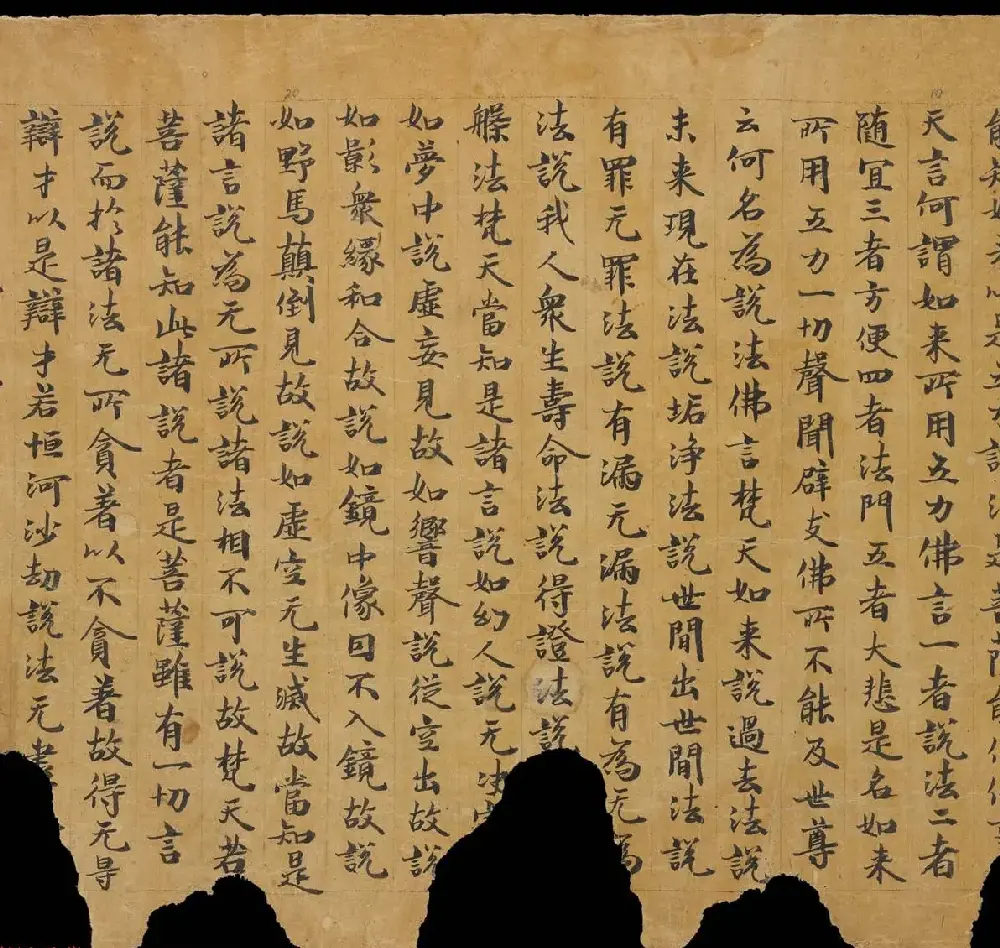 天言何謂如来所用五力佛言一者說法二者
随宜三者方便四者法門五者大悲是名如来
所用五力一切聲聞辟支佛所不能及世尊
云何名為說法佛言梵天如来說過去法說
未来現在法說垢浄法說世間出世間法說
有罪无罪法說有漏无漏法說有為无為
法說我人衆生壽命法說得證法說
槃法梵天當知是諸言說如幻人說无决
如夢中說虛妄見故如響聲說從空出故說
如影衆緣和合故說如鏡中像回不入鏡故說
如野馬顛倒見故說如虛空无生滅故當知是
諸言說為无所說諸法相不可說故梵天若
菩薩能知此諸說者是菩薩雖有一切言
說而於諸法无所貪著以不貪著故得无㝵
辯才以是辯才若恒河沙劫說法无盡